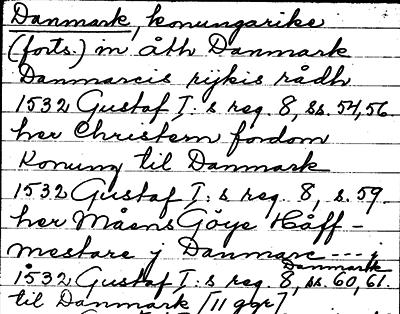 Danmark, konungarike
(forts.) in åth Danmark
Danmarcis rijkis rådh
1532 Gustaf I:s reg. 8, ss. 54, 56.
her Christern fordom
Konung til Danmark
1532 Gustaf I:s reg. 8, s. 59.
her Måens Göye Håff-
mestare j Danmarc --- j
Danmark
1532 Gustaf I:s reg. 8, ss. 60, 61.
til Danmark [11 ggr]